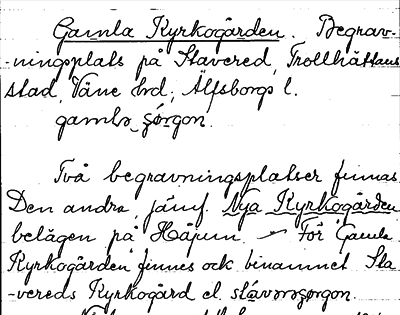 Gamla Kyrkogården. Begrav-
-ningsplats på Stavered, Trollhättans
stad, Väne hrd; Älfsborgs l.
gambə ʂǫrgon.
Två begravningsplatser finnas.
Den andra, jämf. Nya Kyrkogården
belägen på Håjum. – För Gamla
Kyrkogården finnes ock binamnet Sta
-vereds Kyrkogård el.